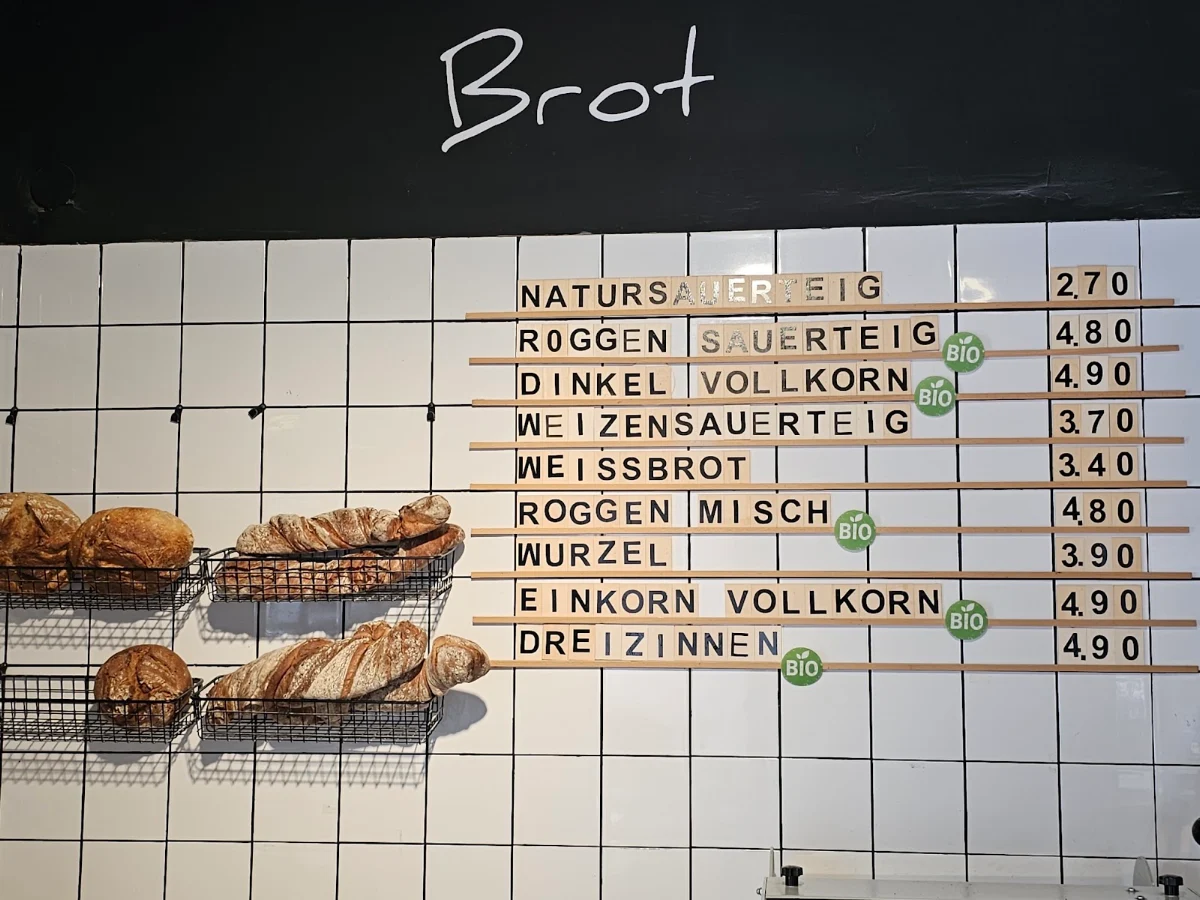 Brot
NATURSAUERTEIG 2.70
ROGGEN SAUERTEIG BIO 4.80
DINKEL VOLLKORN BIO 4.90
WEIZENSAUERTEIG 3.70
WEISSBROT 3.40
ROGGEN MISCH BIO 4.80
WURZEL 3.90
EINKORN VOLLKORN BIO 4.90
DREIZINNEN BIO 4.90